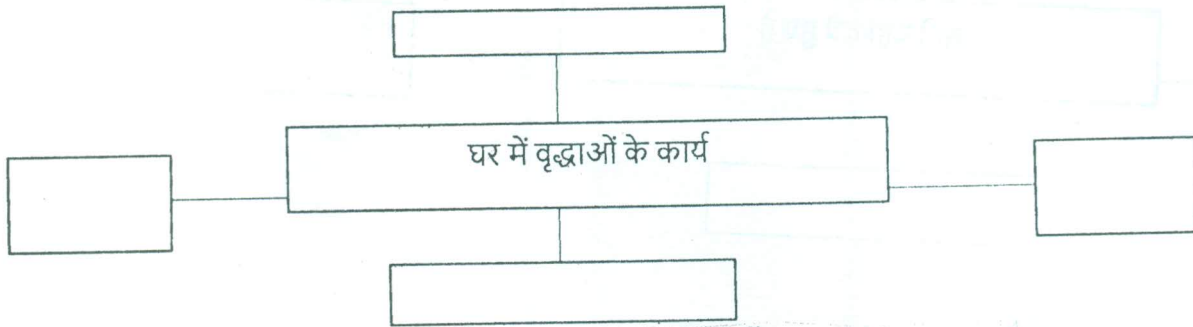 घर में वृद्धाओं के कार्य